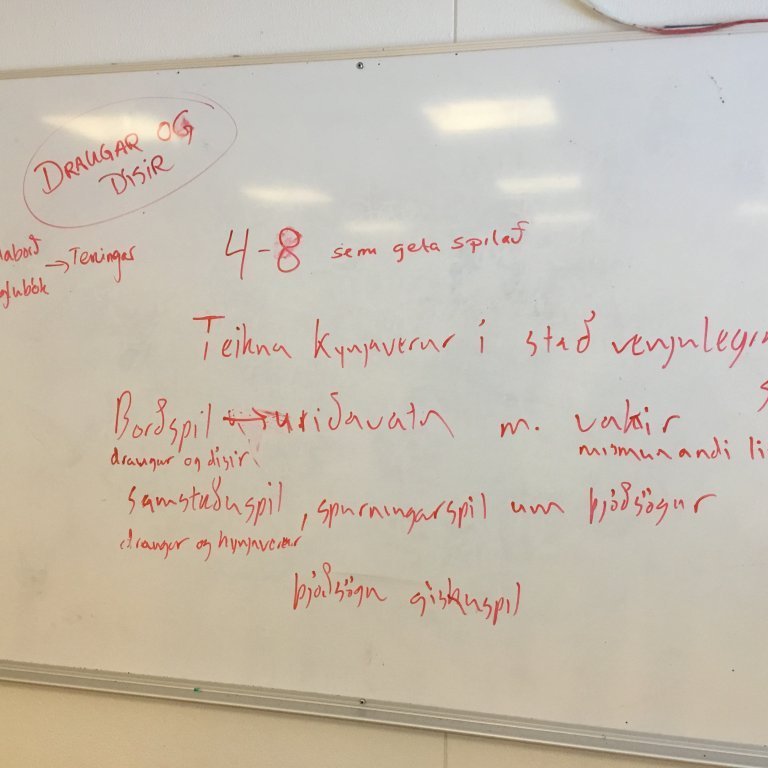 DRAUGAR OG
DISIR
→ Teningar
4-8 sem geta spilað
Teikna kynjaverur í stað
Borðspil m. vakir
draugar og disir
mismunandi
samstæðuspil, spurningarspil um þjóðsögur
draugar og kynjaverur
þjóðsögn giskuspil